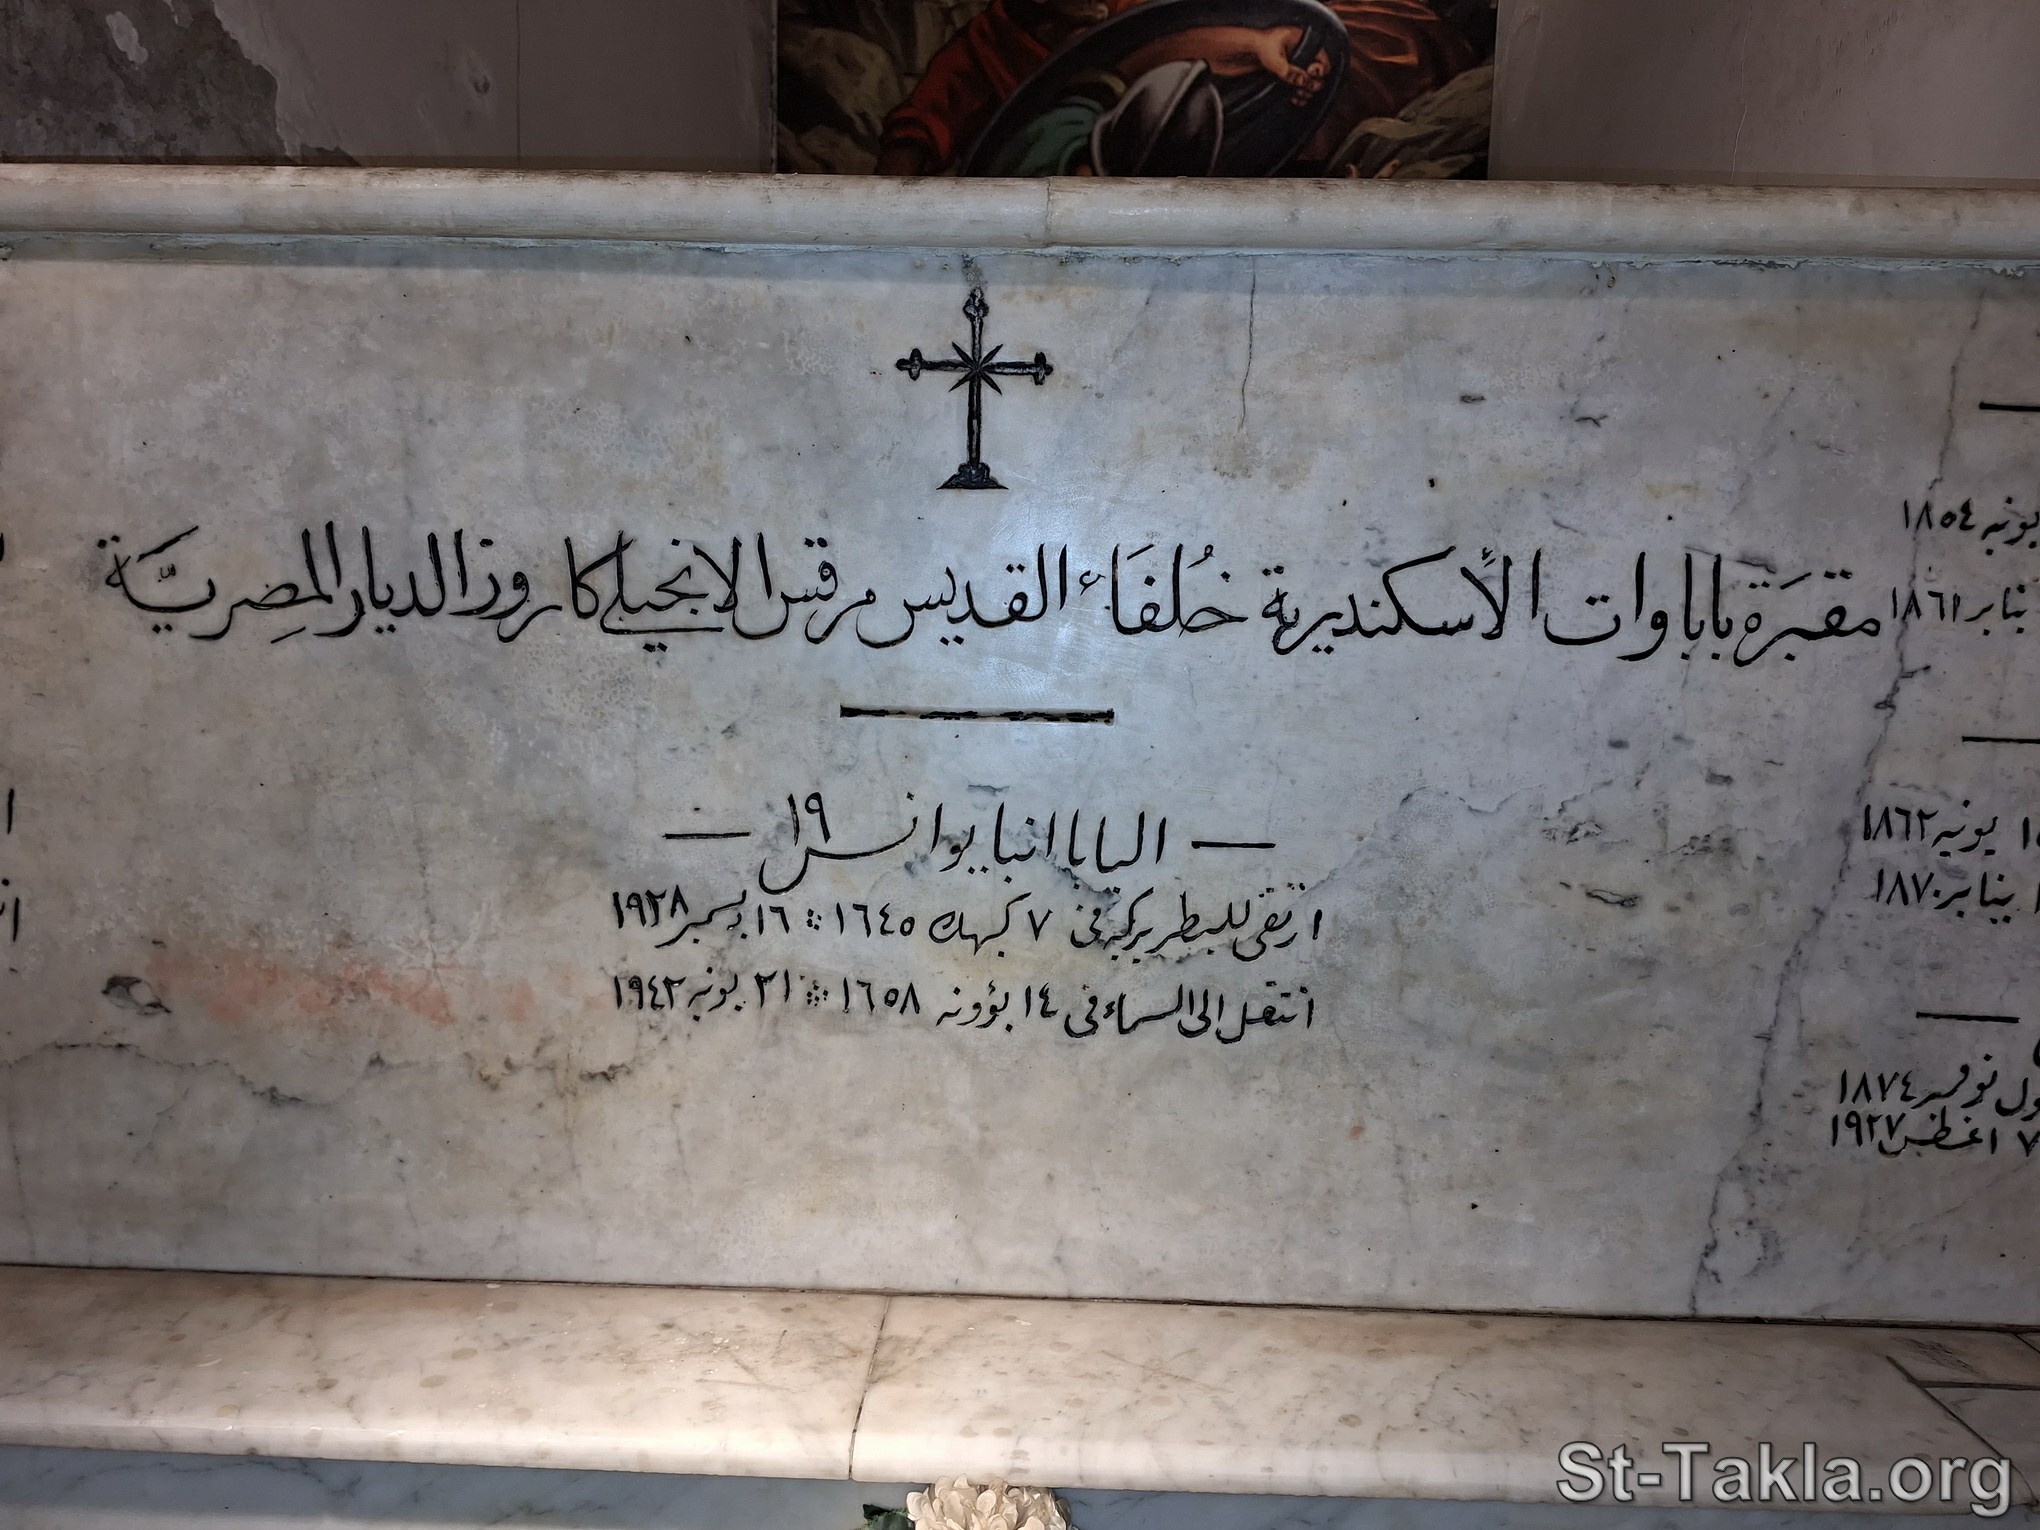 مقبَرَة باباوات الأسكندرية خُلفَاء القديس مرقس الانجيلي كاروز الديار المصِريَّة
البابا انبا يوانس ١٩
ارتقى للبطريركية في ٧ كيهك ١٦٤٥ ١٦ ديسمبر ١٩٢٨
انتقل الى السماء في ١٤ بؤونه ١٦٥٨ ٢١ يونيه ١٩٤٢
يونيه ١٨٥٤
يناير ١٨٦١
يونيه ١٨٦٢
يناير ١٨٧٠
نوفمبر ١٨٧٤
٧ اغسطس ١٩٢٧
St-Takla.org